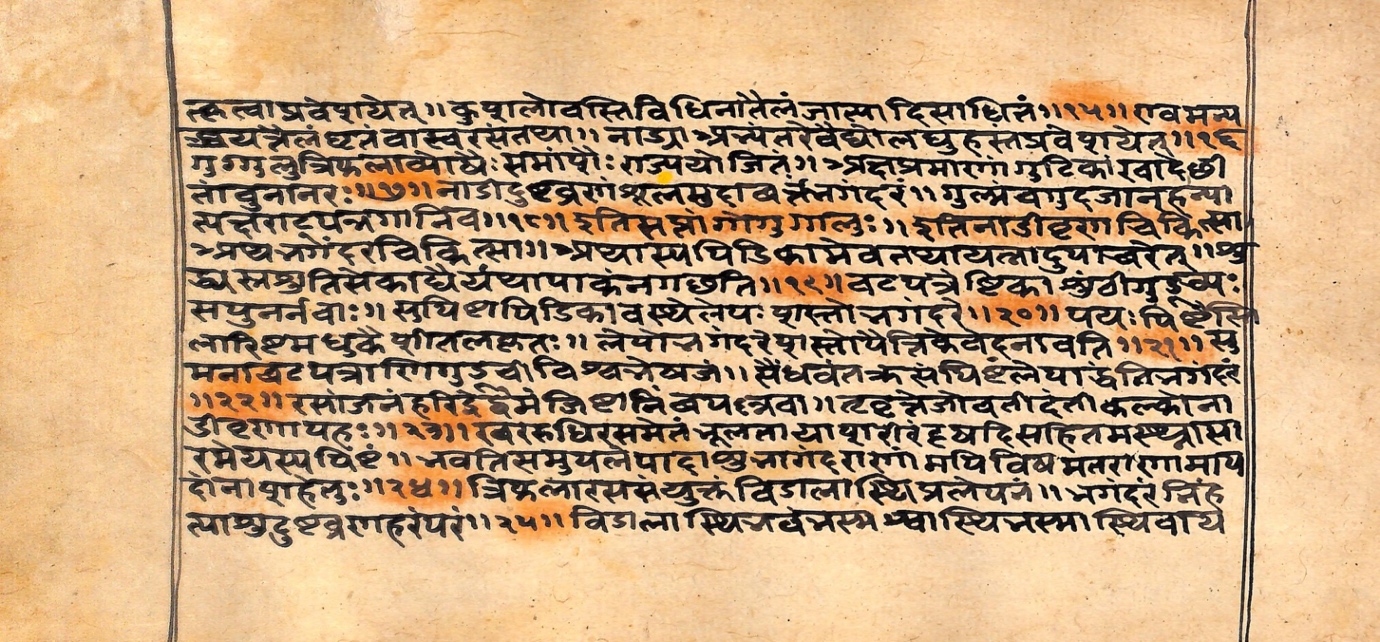 त्कृत्वाप्रवेशयेत्॥ कुशलोवस्तिविधिनातैलंजात्यादिसाधितं॥१५॥ एवमन्य
च्चयत्तैलंघृतंवास्वरसंतथा॥ नाड्याअभ्यंतरेवैद्योलघुहस्तःप्रवेशयेत्॥१६
गुग्गुलुत्रिफलाव्योषैः समांशैः राज्ययोजितं॥ अक्षप्रमाणां गुटिकां खादेछी
तांवुनानरः॥१७॥ नाडीदुष्टव्रणंशूलमुदावर्त्तंभगंदरं॥ गुल्मंचगुदजान्हन्या
त्पक्षीराट्पन्नगानिव॥१८॥ इतिसप्तांगोगुग्गुलुः॥ इतिनाडीव्रणचिकित्सा
अथभगंदरचिकित्सा॥ अथास्यपिडिकामेवतथायत्नादुपाचरेत्॥शु
द्ध्यस्रश्रुतिसेकाद्यैर्यथापाकंनगछति॥१९॥ वटपत्रेष्टिकाशुंठीगुडूच्यः
सपुनर्नवाः॥ सुपिष्टापिडिकावस्थेलेपः शस्तोभगंदरे॥२०॥ पयः पिष्टैस्ति
लारिष्टमधुकैः शीतलःकृतः॥ लेपोभगंदरेशस्तोपैत्तिकेवेदनावति॥२१॥ सु
मनावटपत्राणिगुडूचीविश्वभेषजं॥ सैंधवंतक्रसंपिष्टंलेपाद्धंतिभगंदरं
॥२२॥ रसांजनंहरिद्रेद्वेमंजिष्ठानिंबपल्लवाः॥ तृवृत्तेजोवतीदंतीकल्कोना
डीव्रणापहः॥२३॥ खररुधिरसमेतंभूलतायाशरीरंदृषदिसहितमस्थ्नासा
रमेयस्यपिष्टं॥ भवतिसमुपलेपादाशुभागंदराणामपिविषमतराणामाप
दांनाशहेतुः॥२४॥ त्रिफलारससंयुक्तंविडालास्थिप्रलेपनं॥ भगंदरंनिंह
त्याशुदुष्टव्रणहरंपरं॥२५॥ विडालास्थिभवंभस्मश्वास्थिभस्मास्थिवाथ